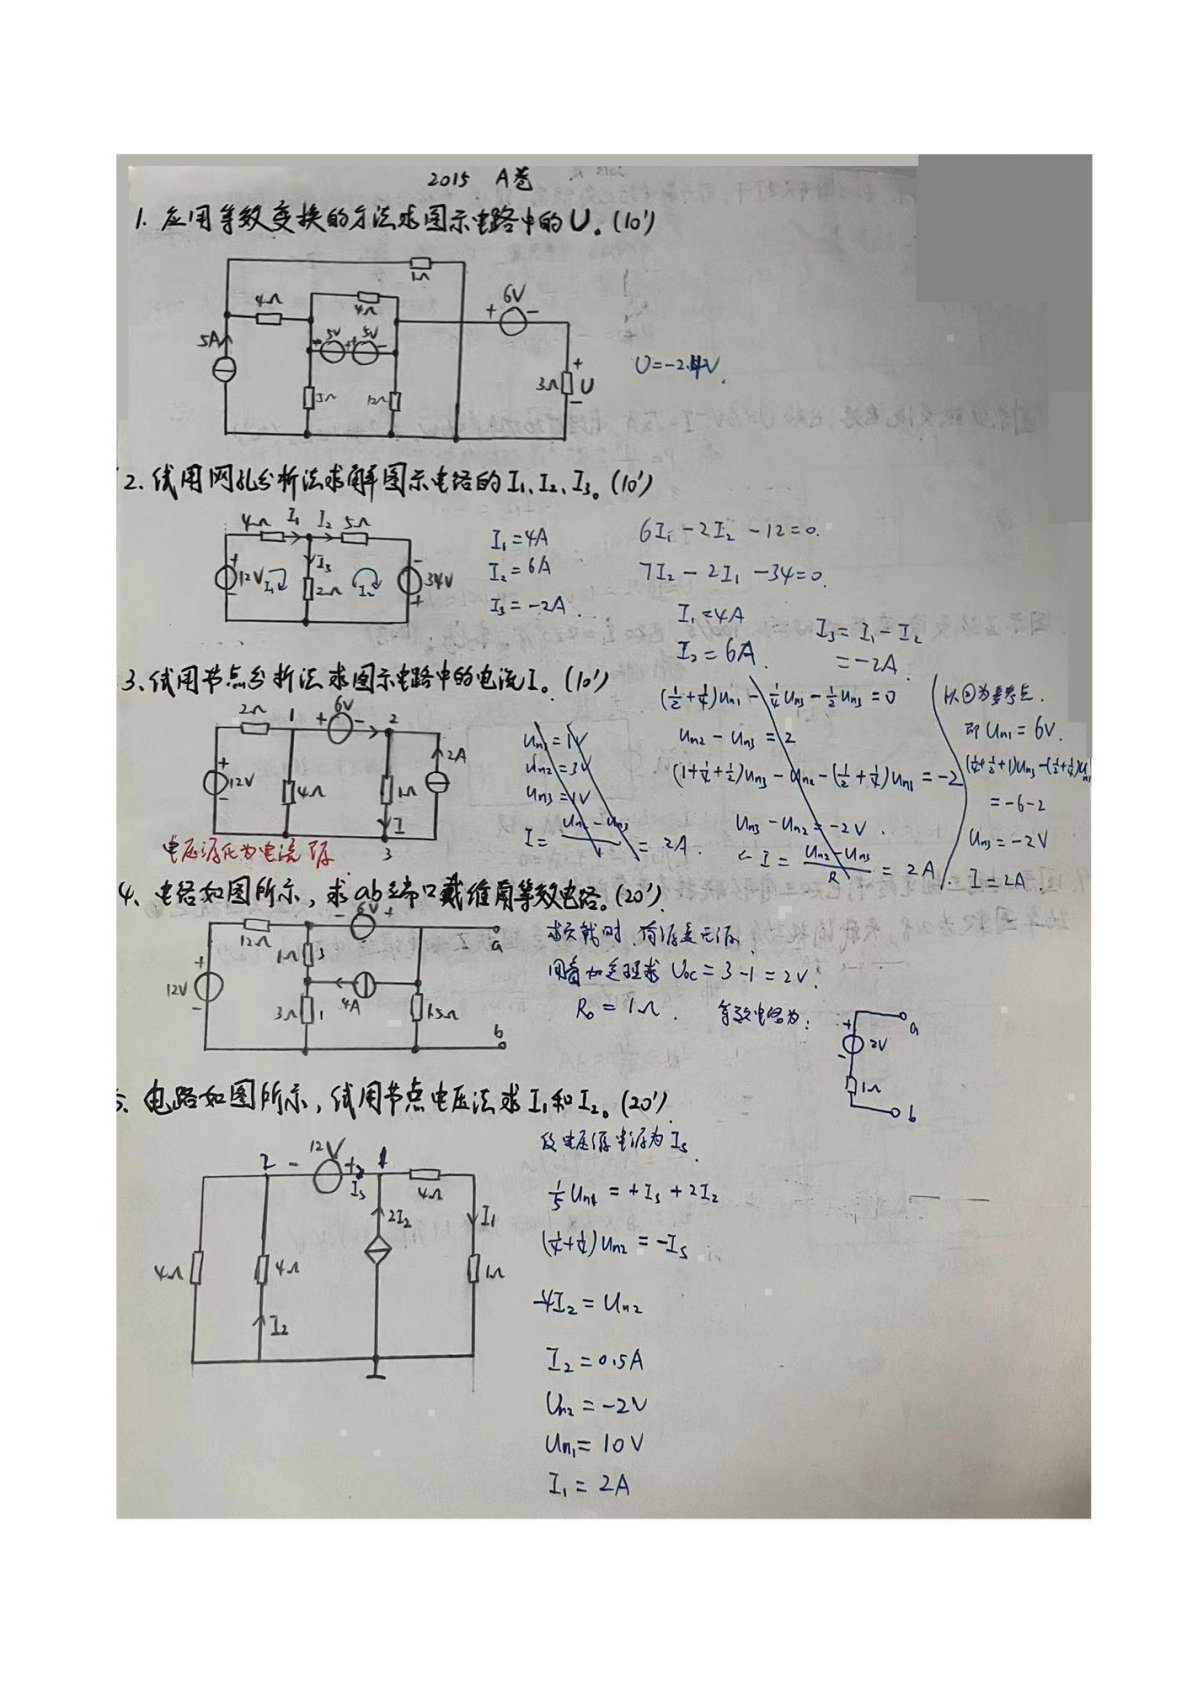 2015 A卷
1. 应用等效变换的方法求图示电路中的U。(10')
1Ω
4Ω
4Ω
6V
+ -
5A
5V 5V
3Ω
12Ω
3Ω
+
U
-
U=-2.4V.
2. 试用网孔分析法求解图示电路的I₁、I₂、I₃。(10')
4Ω I₁ I₂ 5Ω
I₃
12V I₁
2Ω
I₂
34V
I₁=4A
I₂=6A
I₃=-2A.
6I₁-2I₂-12=0.
7I₂-2I₁-34=0.
I₁=4A
I₂=6A.
I₃=I₁-I₂
=-2A.
3、试用节点分析法求图示电路中的电流I。(10')
2Ω 1 + 6V - 2
12V
4Ω
1Ω
2A
I
3
电压源化为电流源
Uₙ₁=1V
Uₙ₂=3V
Uₙ₃=1V
I= Uₙ₂-Uₙ₃ = 2A.
(1/2+1/4)Uₙ₁-1/4Uₙ₃-1/2Uₙ₃=0
Uₙ₂-Uₙ₃=2
(1+1/4+1/2)Uₙ₃-Uₙ₂-(1/2+1/4)Uₙ₁=-2
Uₙ₃-Uₙ₂=-2V.
I= (Uₙ₂-Uₙ₃)/R = 2A.
以②为参考点.
即Uₙ₁=6V.
(1/4+1/2+1)Uₙ₃-(1/2+1/4)Uₙ₁
=-6-2
Uₙ₃=-2V
I=2A.
4、电路如图所示，求ab端口戴维南等效电路。(20')
12Ω
- 6V +
a
1Ω 3
12V
4A
3Ω 1
1.5Ω
b
用叠加定理求 Uoc=3-1=2V.
R₀=1Ω.
等效电路为:
a
2V
1Ω
b
5、电路如图所示，试用节点电压法求I₁和I₂。(20')
2 - 12V + 1
Is
4Ω
2I₂
I₁
4Ω
4Ω
1Ω
I₂
设电压源电流为Is.
1/5Uₙ₁=+Is+2I₂
(1/4+1/4)Uₙ₂=-Is
-4I₂=Uₙ₂
I₂=0.5A
Uₙ₂=-2V
Uₙ₁=10V
I₁=2A